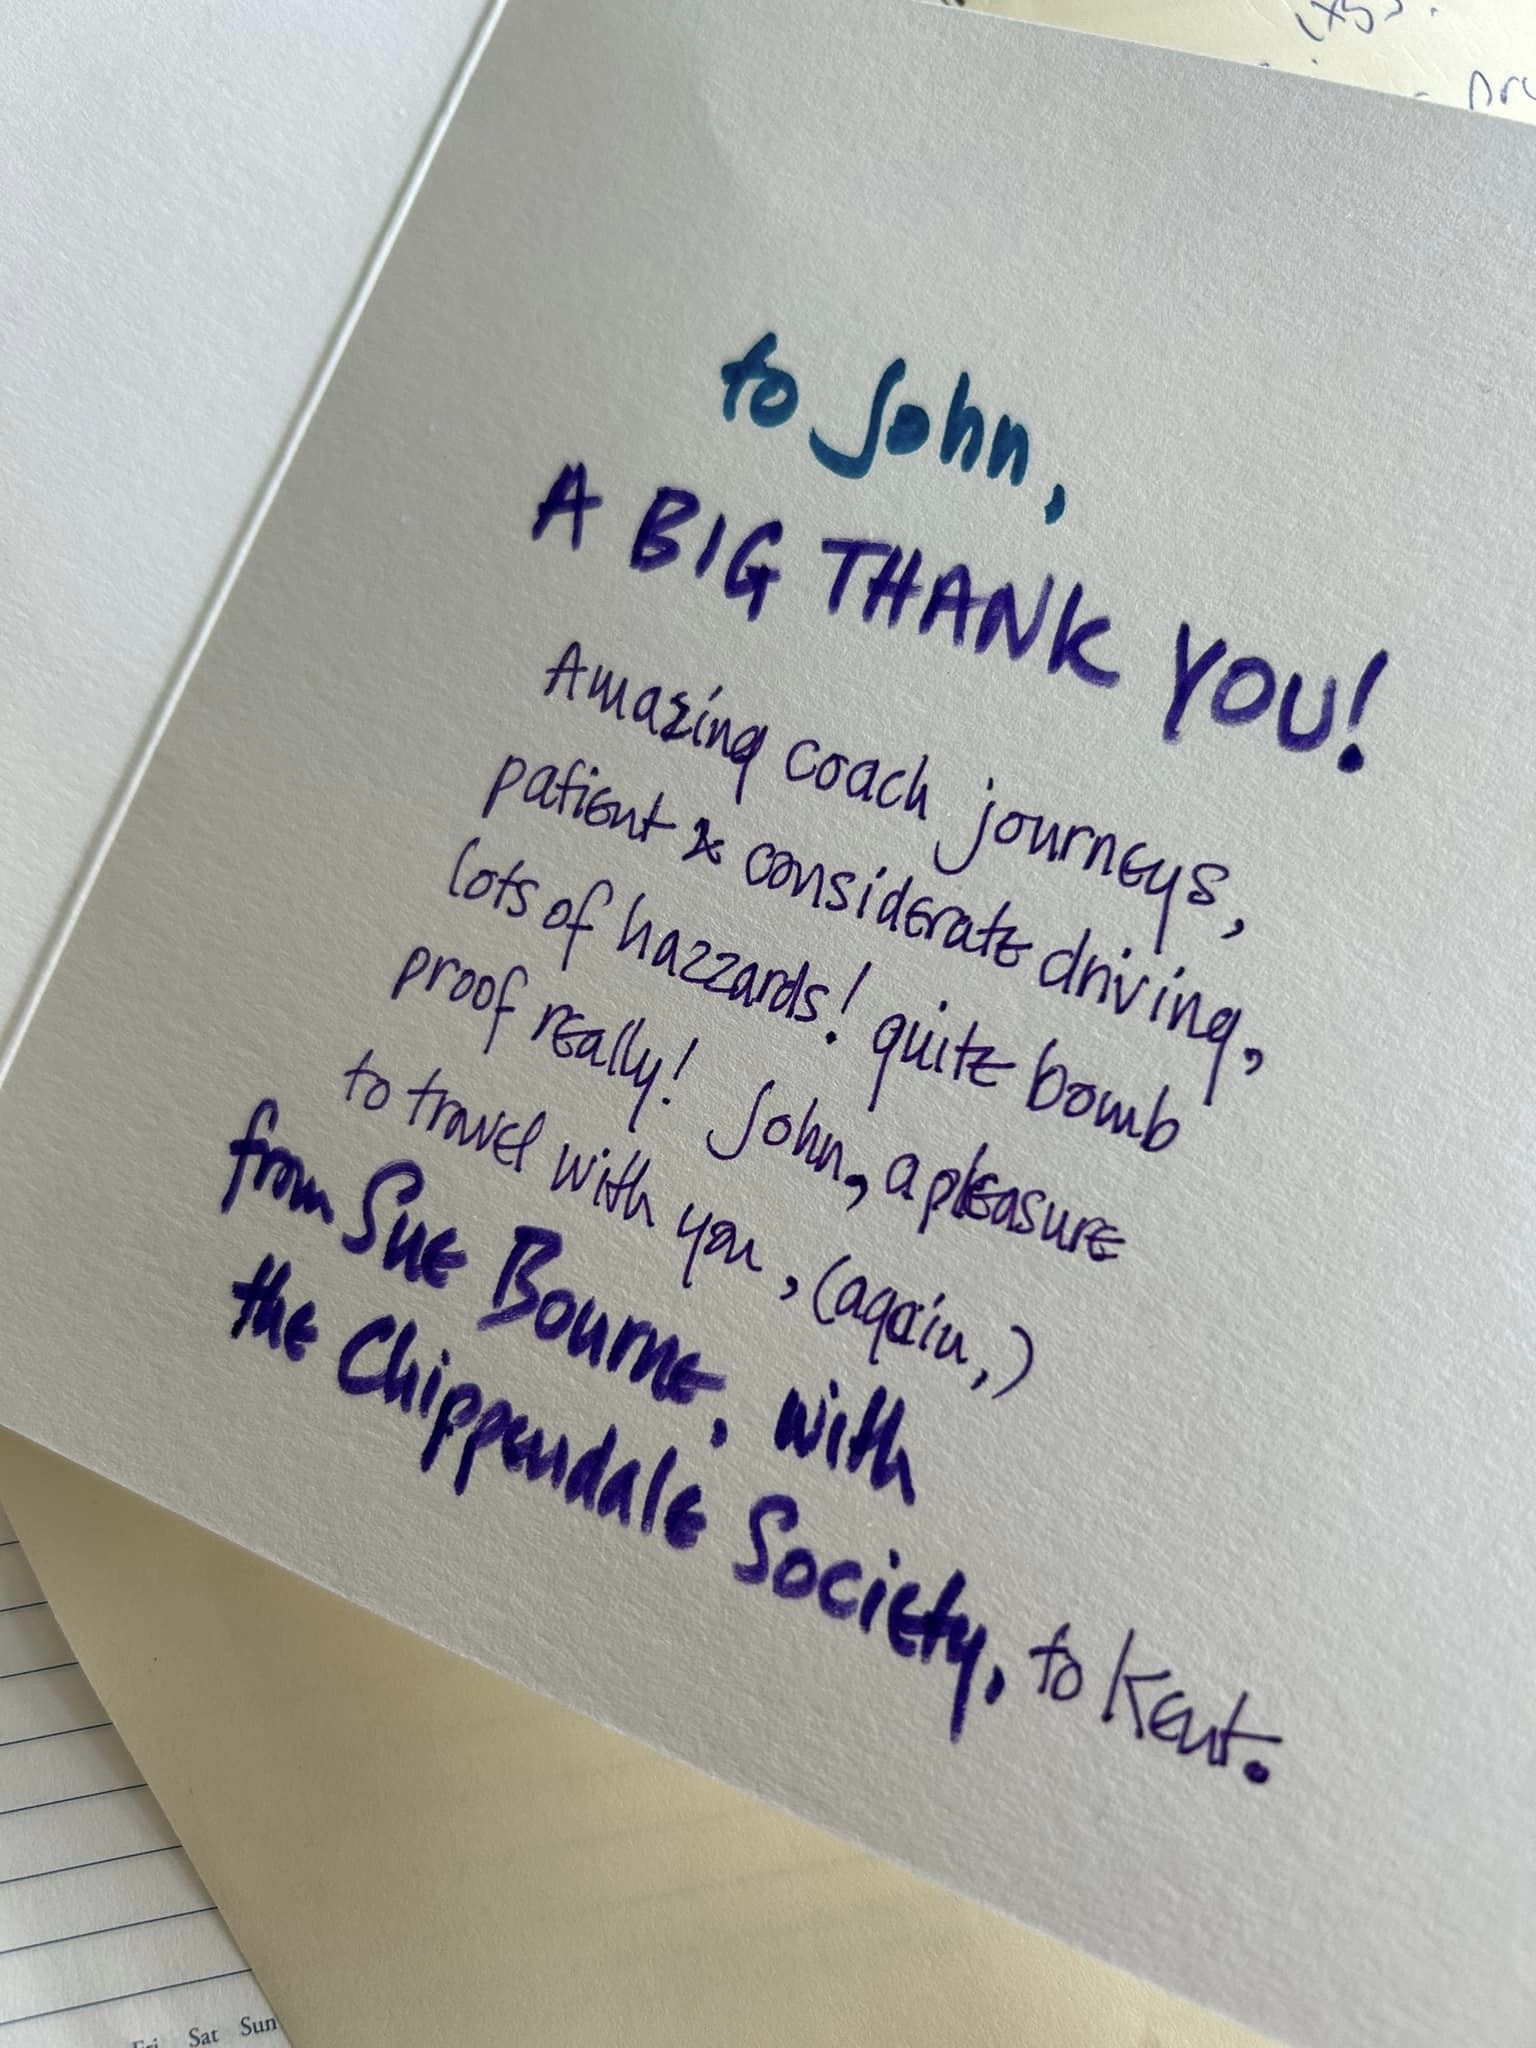 to John,
A BIG THANK YOU!
Amazing coach journeys,
patient & considerate driving,
lots of hazzards! quite bomb
proof really! John, a pleasure
to travel with you, (again,)
from Sue Bourne, with
the Chippendale Society, to Kent.
Fri Sat Sun